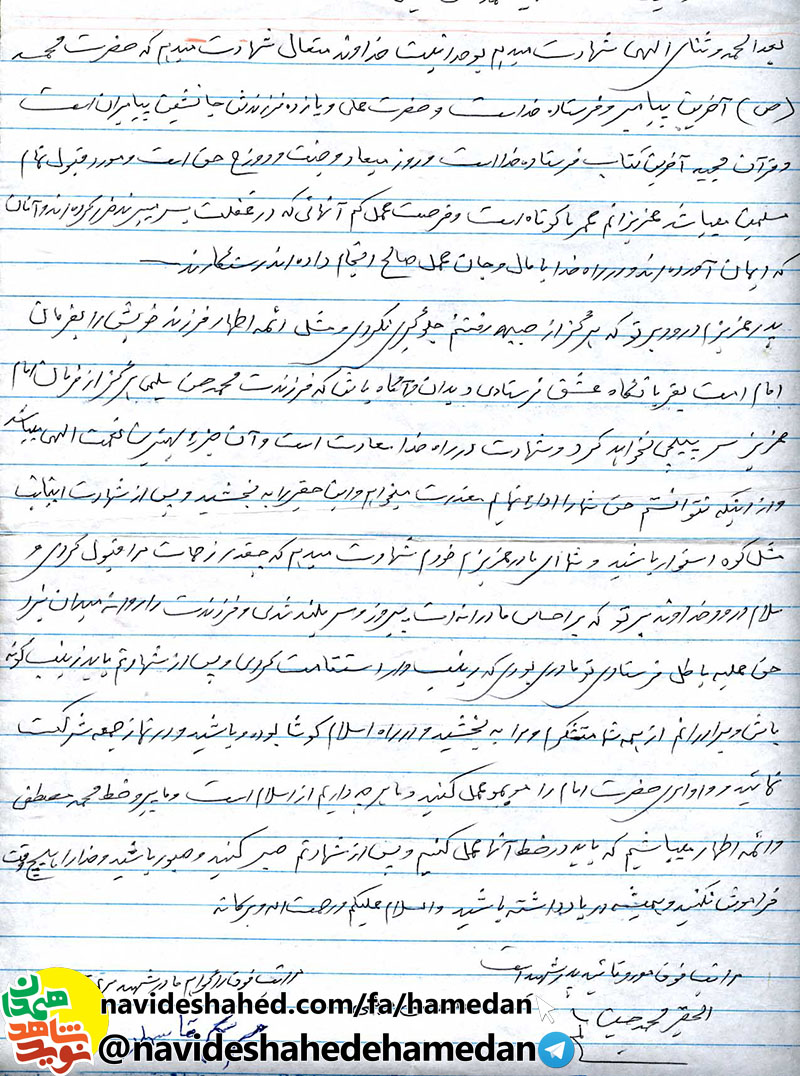 بعد الحمد و ثنای الهی شهادت میدهم بوحدانیت خداوند متعال شهادت میدهم که حضرت محمد
(ص) آخرین پیامبر و فرستاده خداست و حضرت علی و یازده فرزندش جانشین پیامبران است
و قرآن مجید آخرین کتاب فرستاده خدا است و روز میعاد و جنت و دوزخ حق است و مورد قبول تمام
مسلمین میباشد عزیزانم عمر ما کوتاه است و فرصت عمل کم آنهائی که در غفلت بسر میبرند ضرر کرده اند و آنان
که ایمان آورده اند و در راه خدا با مال و جان عمل صالح انجام داده اند رستگارند
پدر عزیزم درود بر تو که هرگز از جبهه رفتنم جلوگیری نکردی و مثل ائمه اطهار فرزند خویش را بفرمان
امام امت بقربانگاه عشق فرستادی و بدان و آگاه باش که فرزندت محمد حسن هرگز از فرمان امام
عزیز سرپیچی نخواهد کرد و شهادت در راه خدا سعادت است و آن جزء بهترین نعمت الهی میباشد
و از اینکه نتوانستم حق شما را ادا نمایم معذرت میخواهم و این حقیر را به بخشید و پس از شهادت اینجانب
مثل کوه استوار باشید و شما ای مادر عزیزم خودم شهادت میدهم که چقدر زحمات مرا قبول کردی و
سلام و درود خداوند بر تو که بر احساس مادرانه ات پیروز و سربلند شدی و فرزندت را روانه میدان نبرد
حق علیه باطل فرستادی تو مادری بودی که زینب وار استقامت کردی و پس از شهادتم باید زینب گونه
باش و برادرانم از همه شما متشکرم و مرا به بخشید و در راه اسلام کوشا بوده و باشید و در نماز جمعه شرکت
نمائید و اوامر حضرت امام را مو بمو عمل کنید و ما هر چه داریم از اسلام است و ما پیرو خط محمد مصطفی
و ائمه اطهار میباشیم که باید در خط آنها عمل کنیم و پس از شهادتم صبر کنید و صبور باشید و خدا را هیچوقت
فراموش نکنید و همیشه در یاد داشته باشید والسلام علیکم و رحمت اله و برکاته
مراتب فوق مورد تائید پدر شهید است
مراتب فوق را گواهم مادر شهید
الحقیر محمد حسین
navideshahed.com/fa/hamedan
@navideshahedehamedan
نوید شاهد همدان